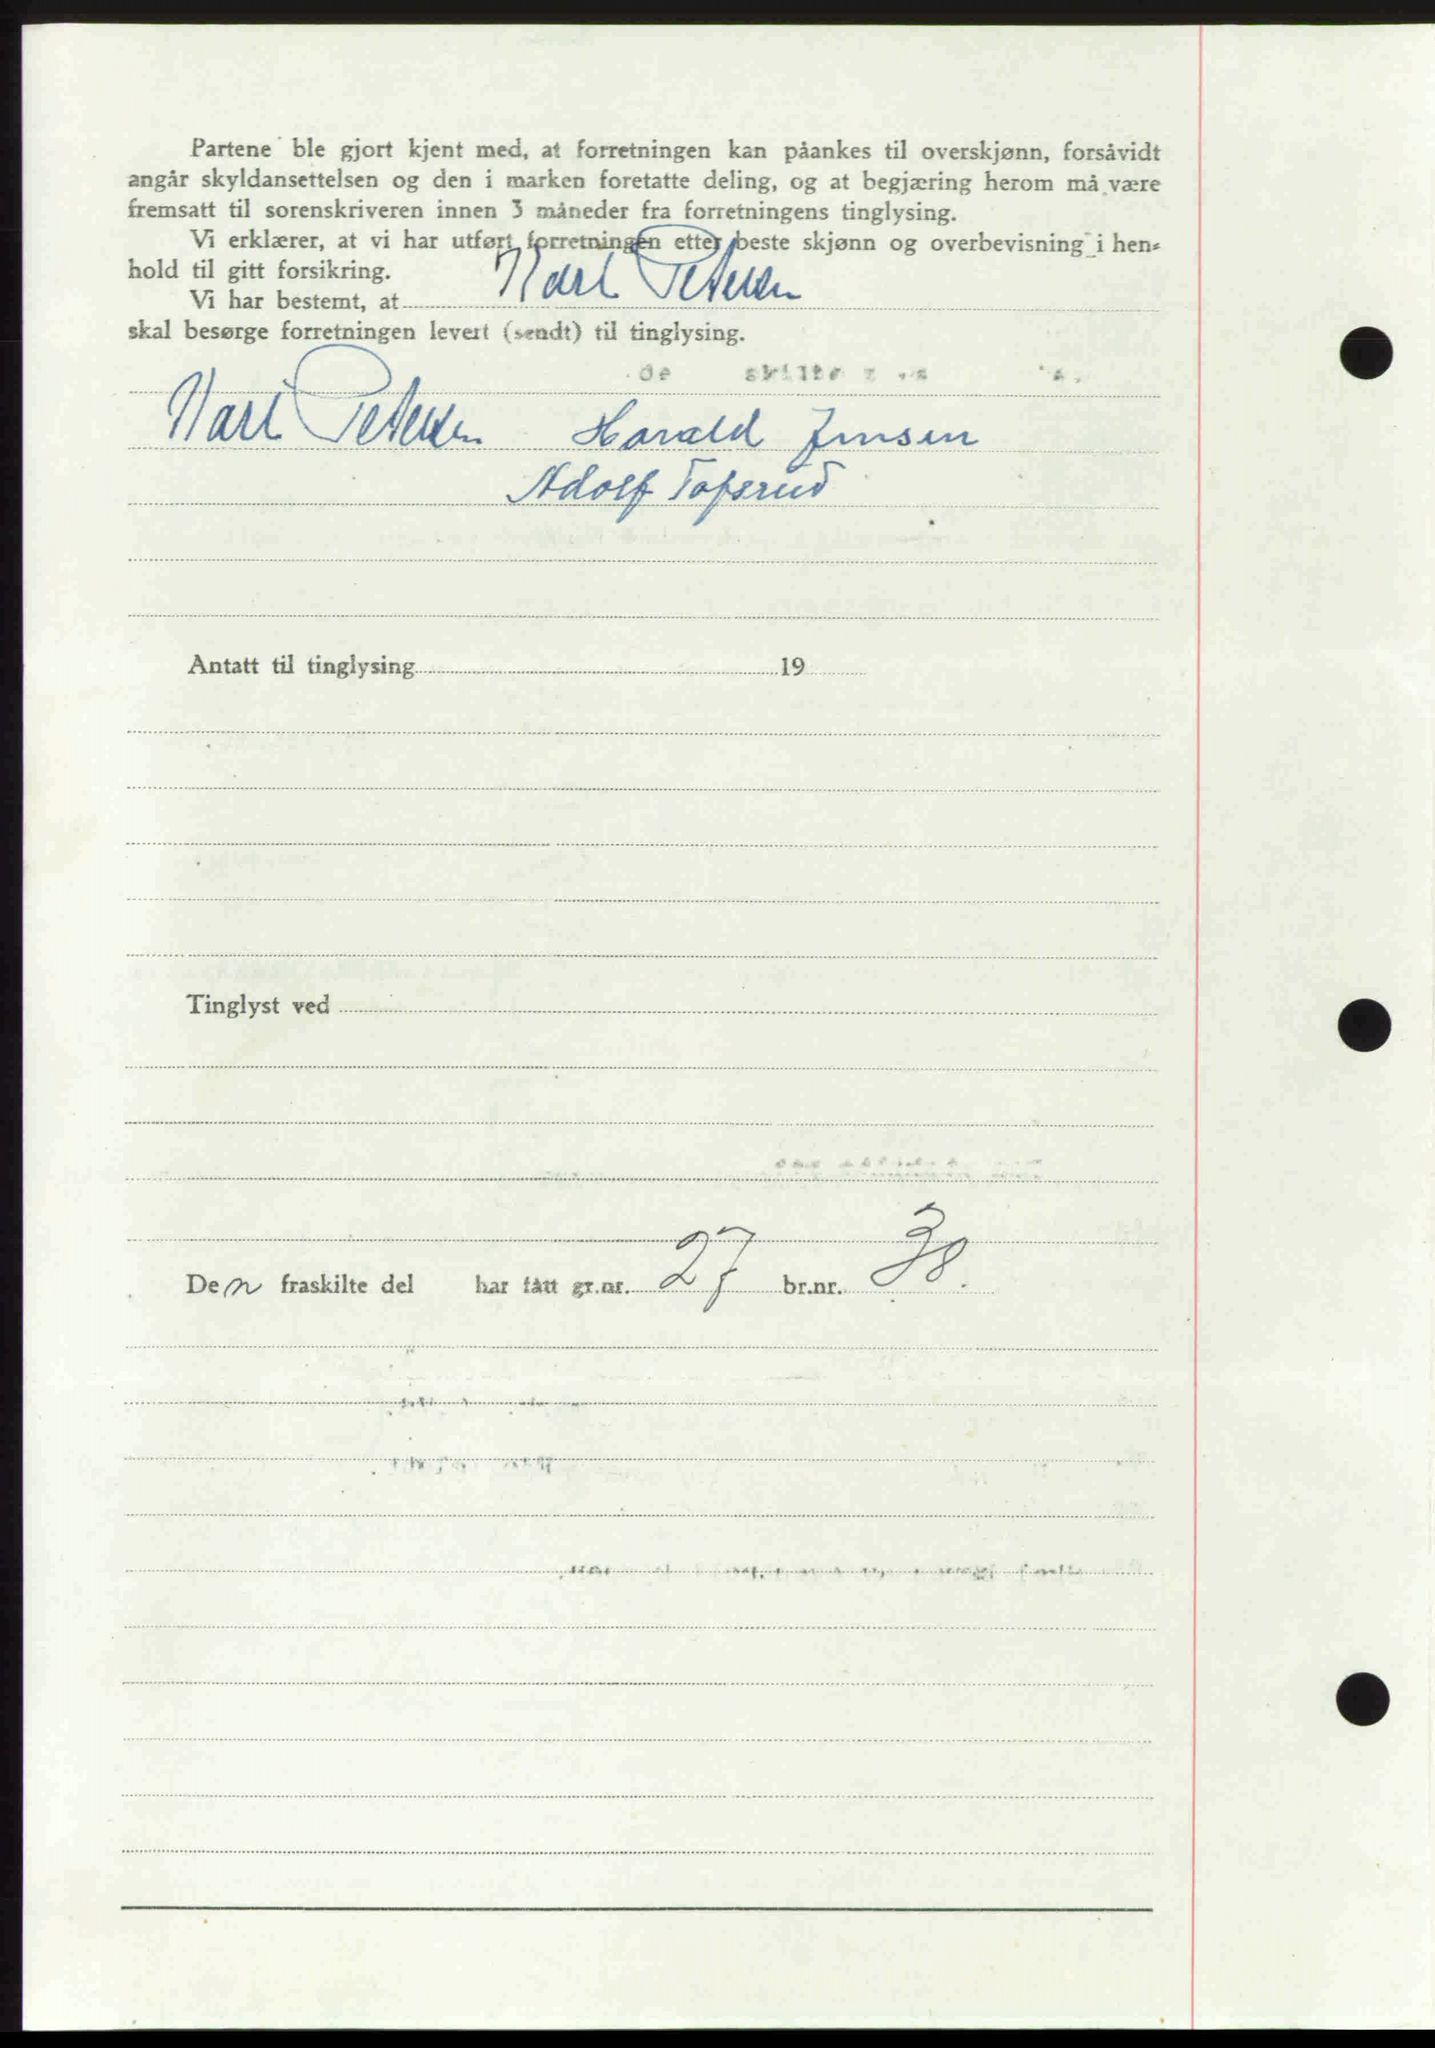 Partene ble gjort kjent med, at forretningen kan påankes til overskjønn, forsåvidt
angår skyldansettelsen og den i marken foretatte deling, og at begjæring herom må være
fremsatt til sorenskriveren innen 3 måneder fra forretningens tinglysing.
Vi erklærer, at vi har utført forretningen etter beste skjønn og overbevisning i hen-
hold til gitt forsikring.
Vi har bestemt, at Karl Petersen
skal besørge forretningen levert (sendt) til tinglysing.
Karl Petersen Harald Jensen
Adolf Tofsrud
Antatt til tinglysing 19
Tinglyst ved
Den fraskilte del har fått gr.nr. 27 br.nr. 38.